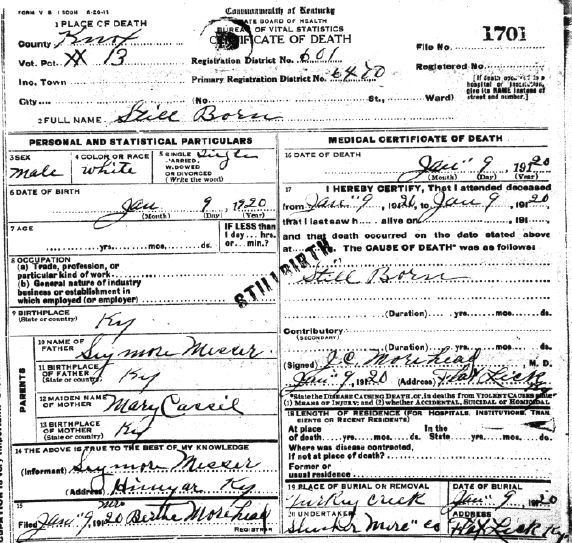 FORM V. S. 1 500M 8-20-11
Commonwealth of Kentucky
STATE BOARD OF HEALTH
BUREAU OF VITAL STATISTICS
CERTIFICATE OF DEATH
1 PLACE OF DEATH
County Knox
Vot. Pct. XX 13
Inc. Town
City
Registration District No. 601
Primary Registration District No. 6470
(No. St., Ward)
File No. 1701
Registered No.
[If death occurred in a hospital or institution, give its NAME instead of street and number.]
2 FULL NAME Still Born
PERSONAL AND STATISTICAL PARTICULARS
3 SEX
male
4 COLOR OR RACE
White
5 SINGLE, MARRIED, WIDOWED OR DIVORCED (Write the word)
Single
6 DATE OF BIRTH
Jan 9, 1920
(Month) (Day) (Year)
7 AGE
yrs. mos. ds.
IF LESS than 1 day... hrs. or... min.?
8 OCCUPATION
(a) Trade, profession, or particular kind of work
(b) General nature of industry business or establishment in which employed (or employer)
9 BIRTHPLACE
(State or country)
Ky
PARENTS
10 NAME OF FATHER
Seymore Messer
11 BIRTHPLACE OF FATHER
(State or country)
Ky
12 MAIDEN NAME OF MOTHER
Mary Cassil
13 BIRTHPLACE OF MOTHER
(State or country)
Ky
14 THE ABOVE IS TRUE TO THE BEST OF MY KNOWLEDGE
(Informant) Seymore Messer
(Address) Hinyar Ky
15
Filed Jan" 9, 1920 Mrs Birthe Morehead
REGISTRAR
MEDICAL CERTIFICATE OF DEATH
16 DATE OF DEATH
Jan" 9 19120
(Month) (Day) (Year)
17 I HEREBY CERTIFY, That I attended deceased
from Jan" 9, 1920, to Jan 9, 19120
that I last saw h alive on , 191
and that death occurred on the date stated above
at m. The CAUSE OF DEATH* was as follows:
Still Born
STILLBIRTH
(Duration) yrs. mos. ds.
Contributory
(SECONDARY)
(Duration) yrs. mos. ds.
(Signed) J. C. Morehead, M. D.
Jan" 9, 19120 (Address) Flat Lick Ky
*State the DISEASE CAUSING DEATH, or, in deaths from VIOLENT CAUSES state (1) MEANS OF INJURY; and (2) whether ACCIDENTAL, SUICIDAL or HOMICIDAL
18 LENGTH OF RESIDENCE (FOR HOSPITALS, INSTITUTIONS, TRANSIENTS OR RECENT RESIDENTS)
At place of death yrs. mos. ds. In the State yrs. mos. ds.
Where was disease contracted, if not at place of death?
Former or usual residence
19 PLACE OF BURIAL OR REMOVAL
Turkey Creek
DATE OF BURIAL
Jan" 9 19120
20 UNDERTAKER
Co
Flat Lick Ky